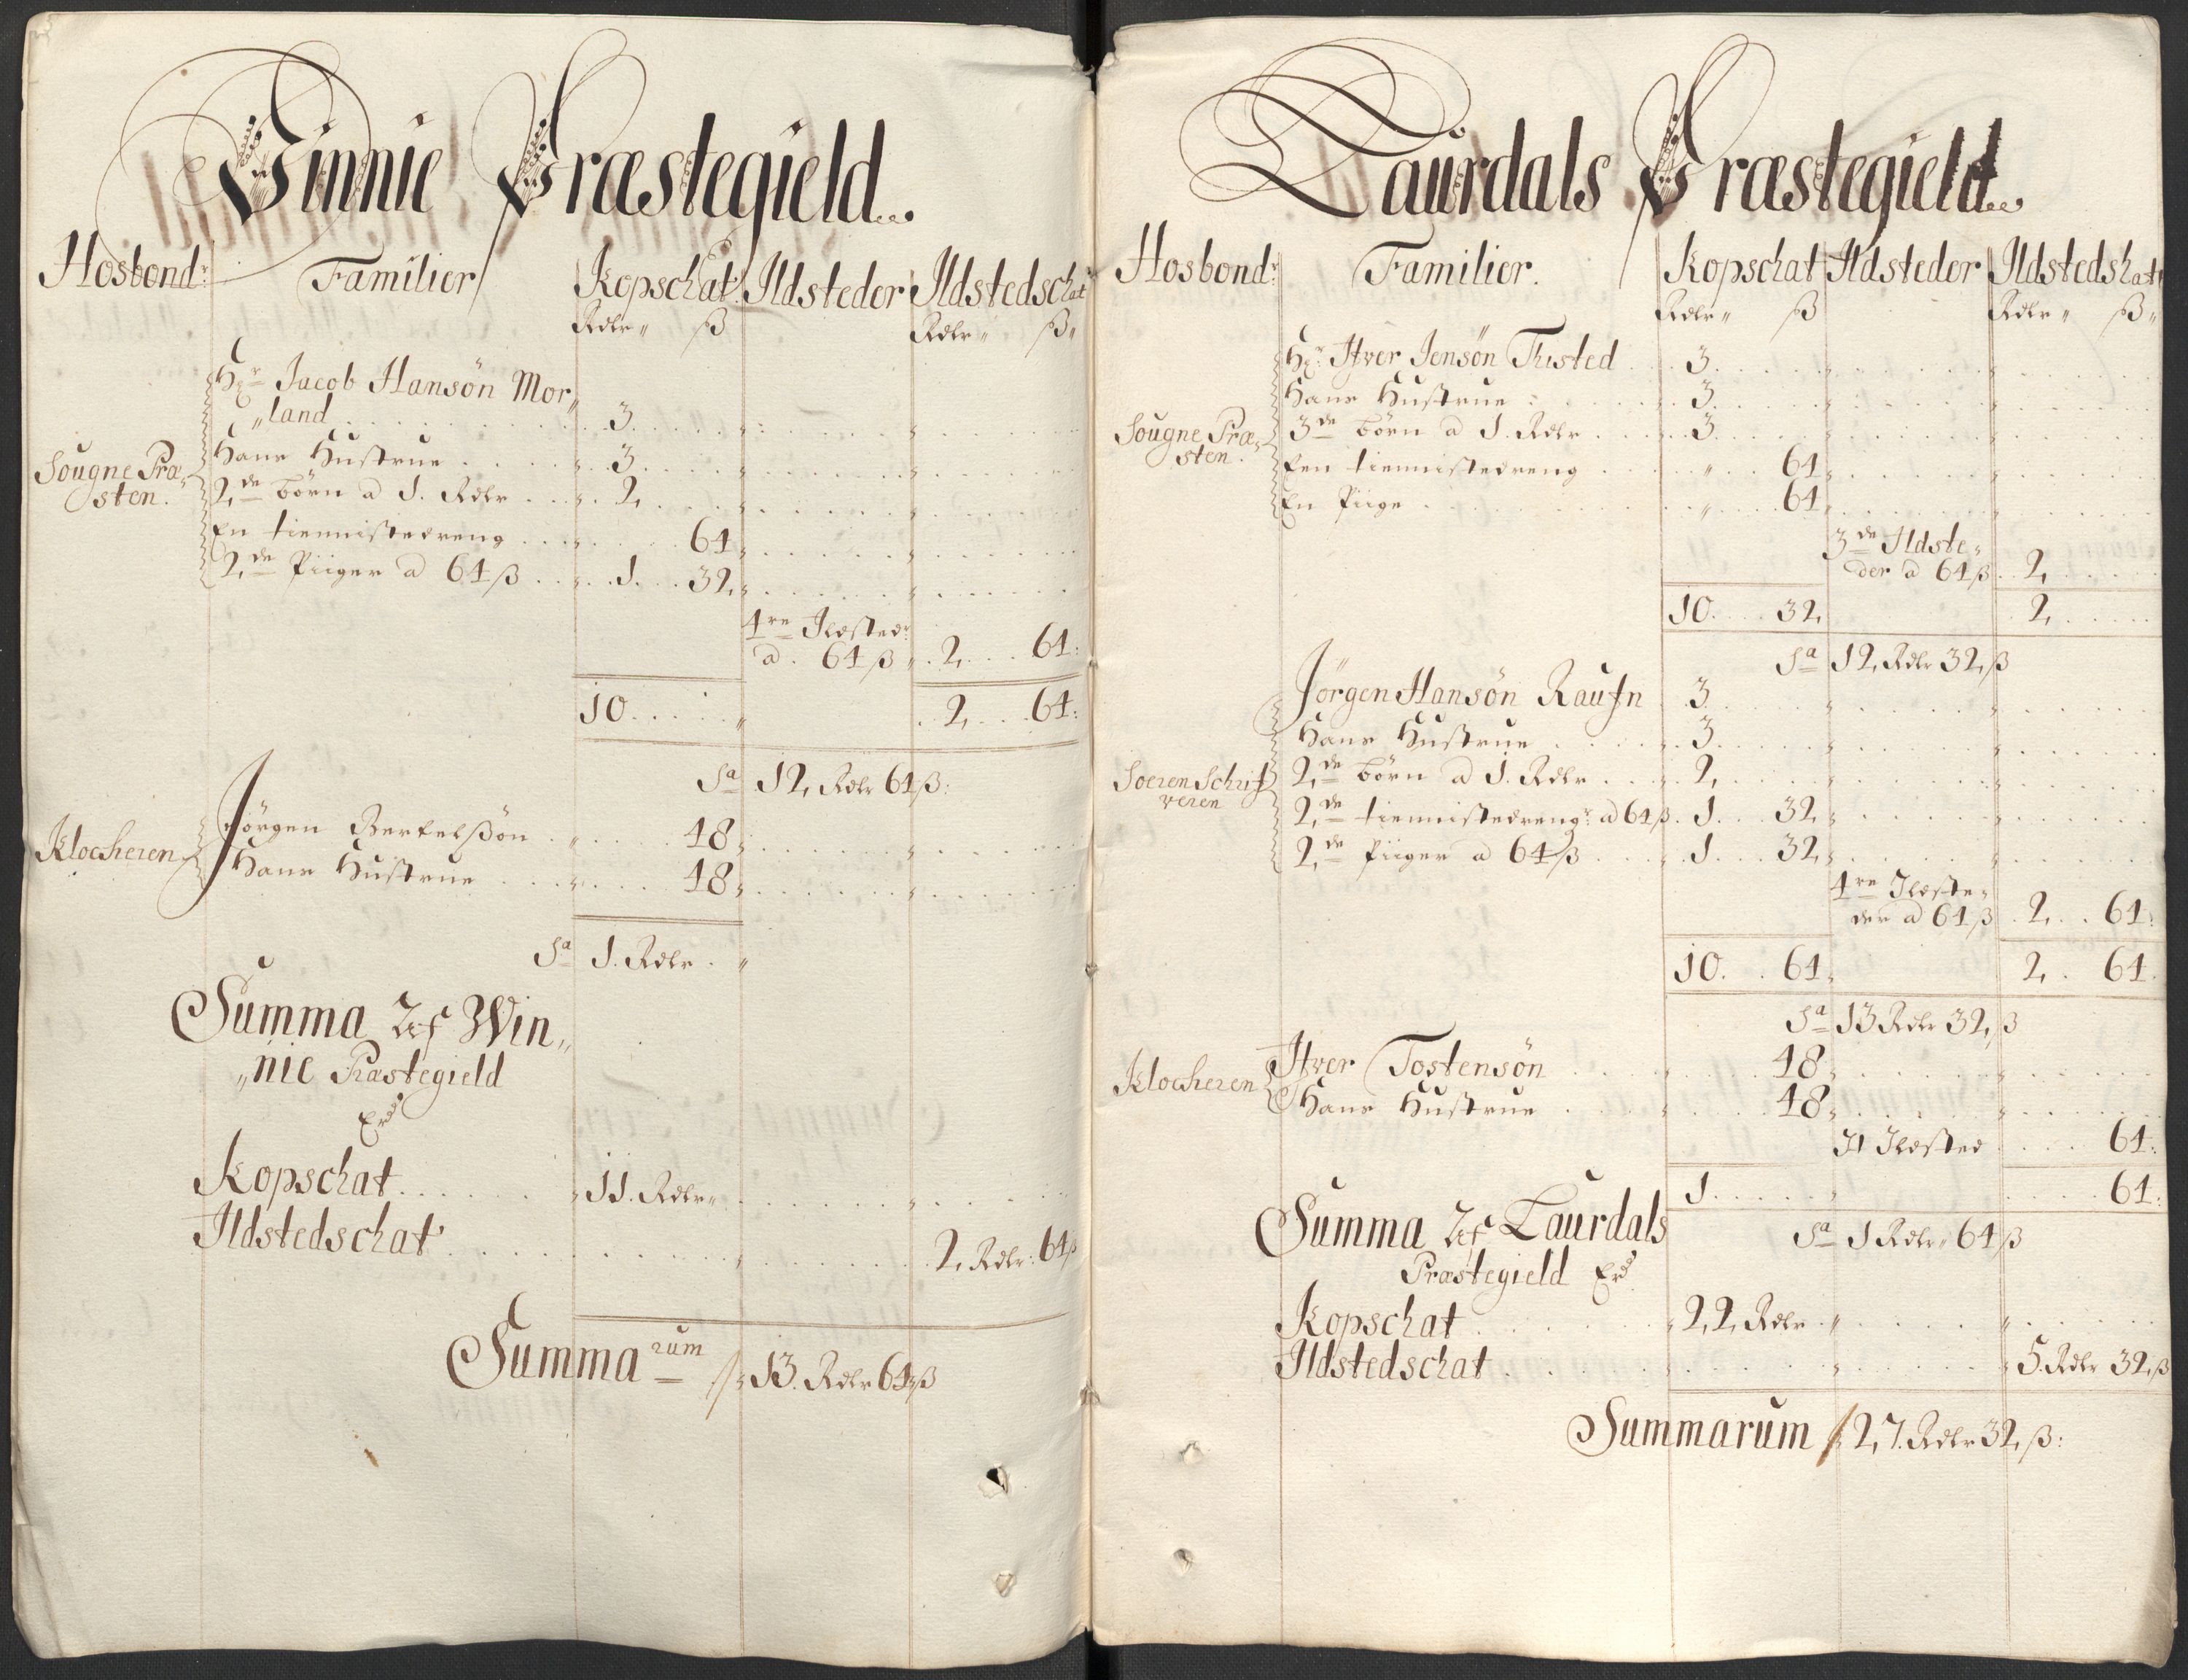 Winnie Præstegield
Hosbondr: Familier Kopschat Ildsteder Ildstedschat
Rdlr ß Rdlr ß
Hr Jacob Hansøn Mor„
„land 3
Hans Hustrue 3
Sougne Præ„
sten.
2de børn a 1. Rdlr 2
En tiennistedreng 64
2de Piiger a 64 ß 1 32
4re Ildstedr:
a 64 ß 2 64
10 2 64
Sa 12 Rdlr 64 ß
Klocheren
Jørgen Bertelßøn 48
Hans Hustrue 48
Sa 1. Rdlr
Summa Af Win„
„nie Præstegield
Er
Kopschat 11. Rdlr
Ildstedschat 2 Rdlr: 64 ß
Summarum 13. Rdlr 64 ß
Laurdals Præstegield
Hosbondr: Familier. Kopschat Ildsteder Ildstedskat
Rdlr ß Rdlr ß
Hr Ifver Jensøn Tisted 3
Hans Hustrue 3
Sougne Præ„
sten.
3de børn a 1. Rdlr 3
Een tiennistedreng 64
En Piige 64
3de Ildste„
der a 64 ß 2
10 32 2
Sa 12 Rdlr 32 ß
Jørgen Hansøn 3
Hans Hustrue 3
Soerenschrif
veren
2de børn a 1. Rdlr 2
2de tiennistedrengr: a 64 ß 1 32
2de Piiger a 64 ß 1 32
4re Ildste„
der a 64 ß 2 64
10 64 2 64
Sa 13 Rdlr 32 ß
Klocheren
Ifver Tostensøn 48
Hans Hustrue 48
Ildsted 64
1 64
Sa 1 Rdlr 64 ß
Summa Af Laurdals
Præstegield Er
Kopschat 22 Rdlr
Ildstedschat 5. Rdlr 32 ß
Summarum 27. Rdlr 32 ß: